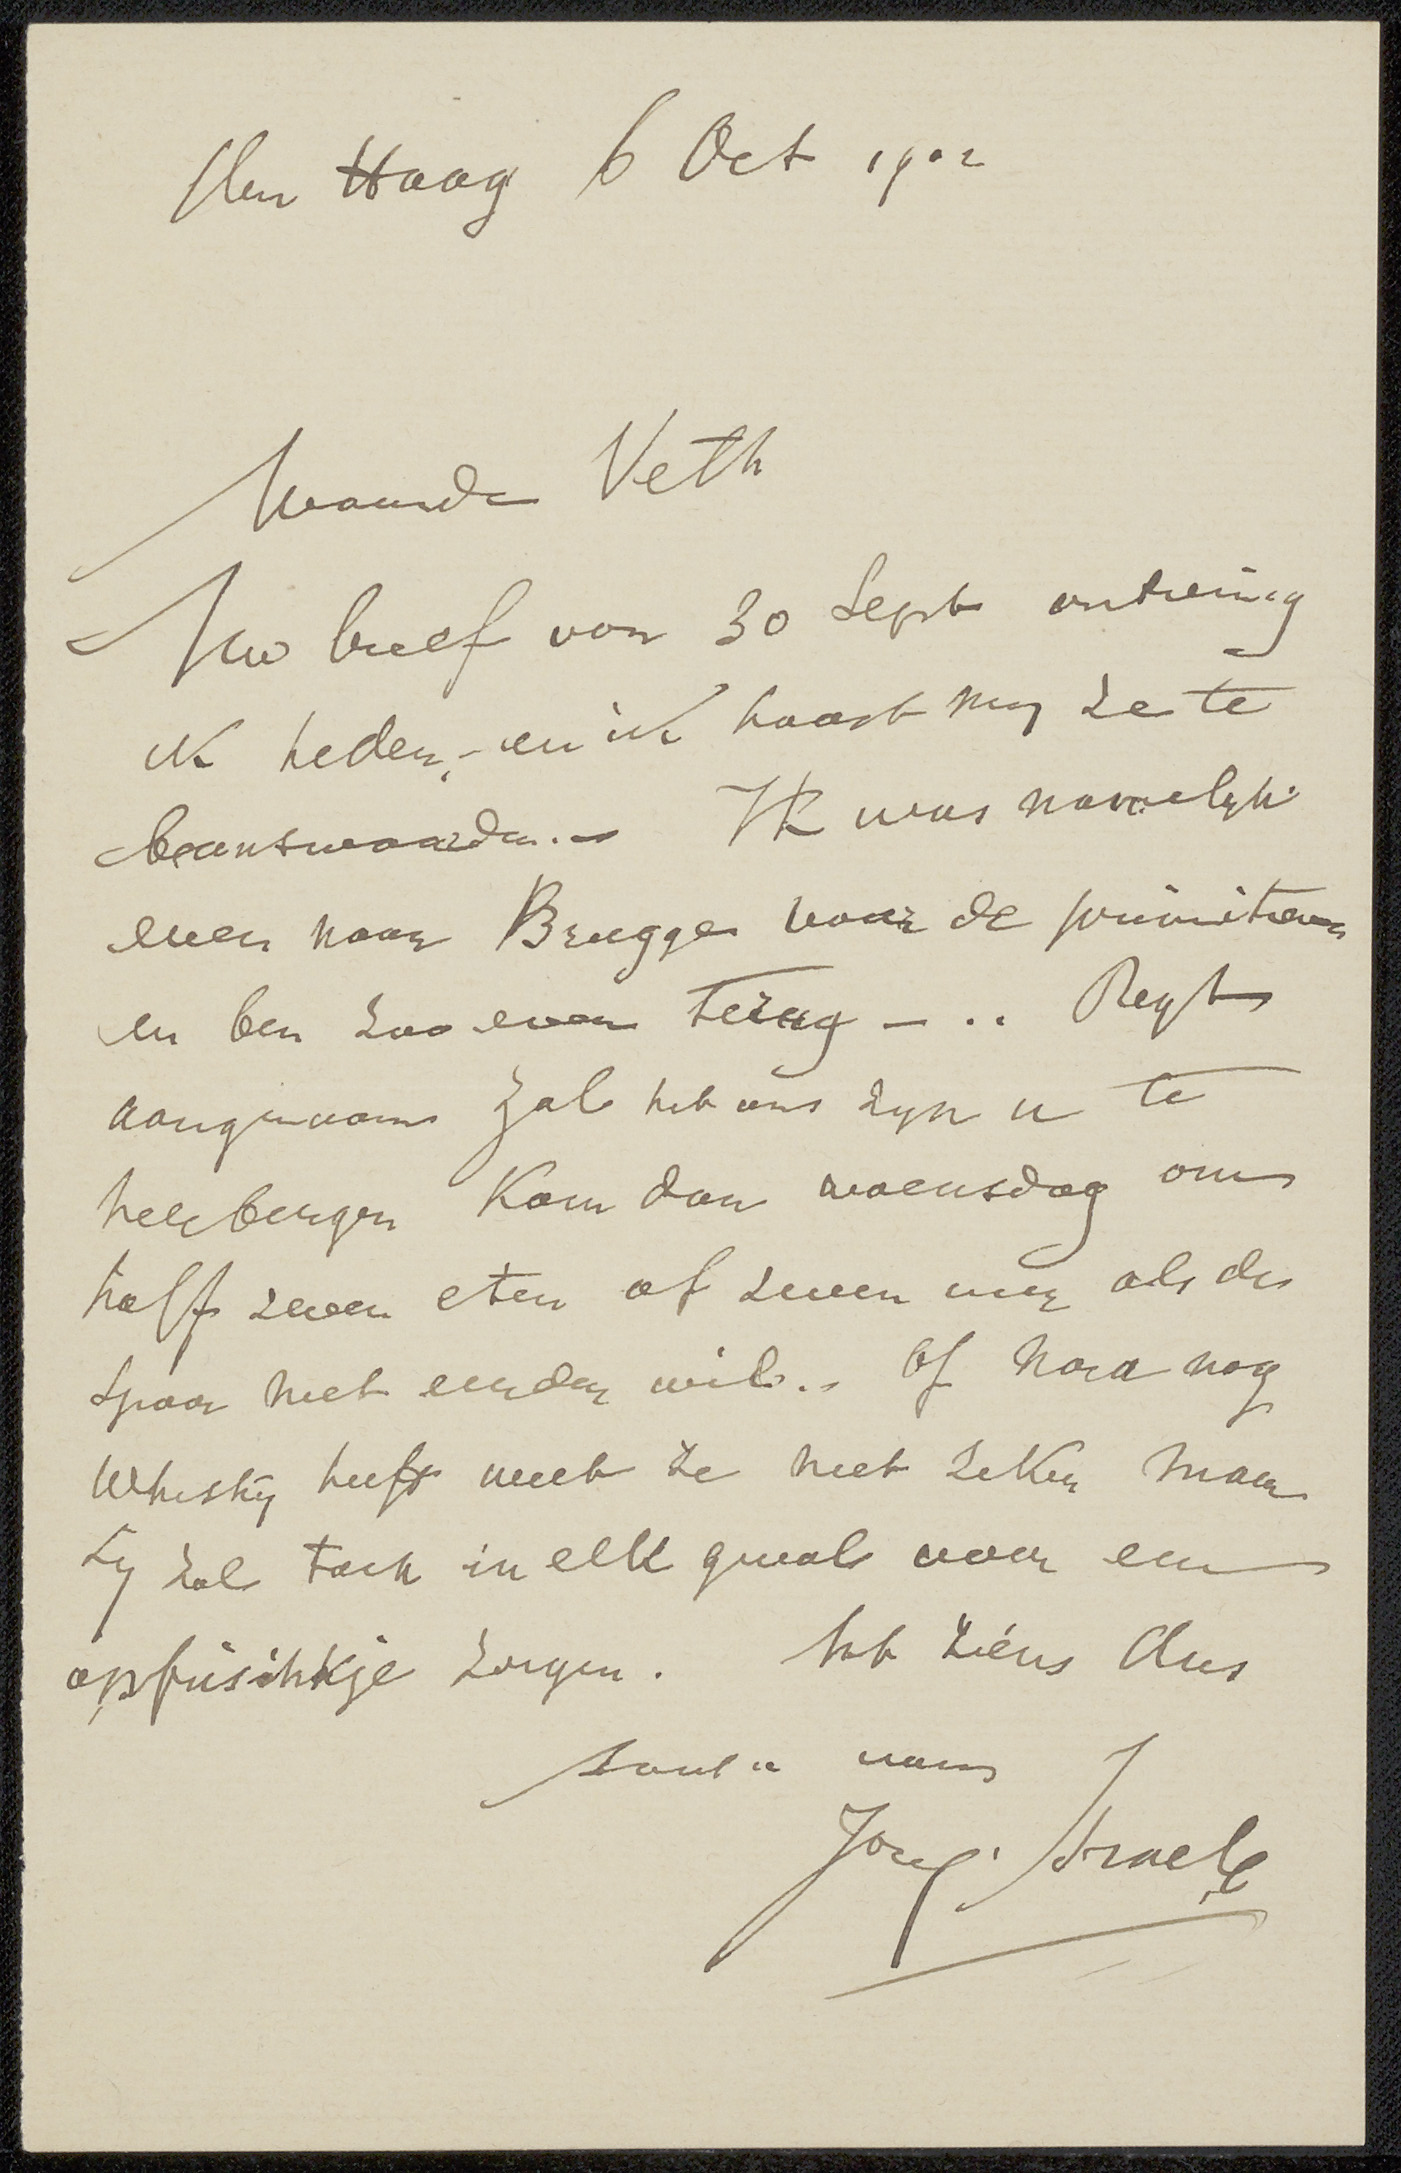 Den Haag 6 Oct 1902
Waarde Veth
Uw brief van 30 Sept ontving
ik heden, - en ik haast my ze te
beantwoorden. - Ik was namelyk
even naar Brugge voor de primitieven
en ben zoo even terug - .. Regt
aangenaam zal het ons zyn u te
herbergen Kom dan woensdag om
half zeven eten of zeven uur als de
spoor niet eerder wil .. Of Nora nog
Whisky heeft weet ze niet zeker maar
zy zal toch in elk geval voor een
opfrisschkje zorgen. Tot ziens dus
van
Jozef Israels